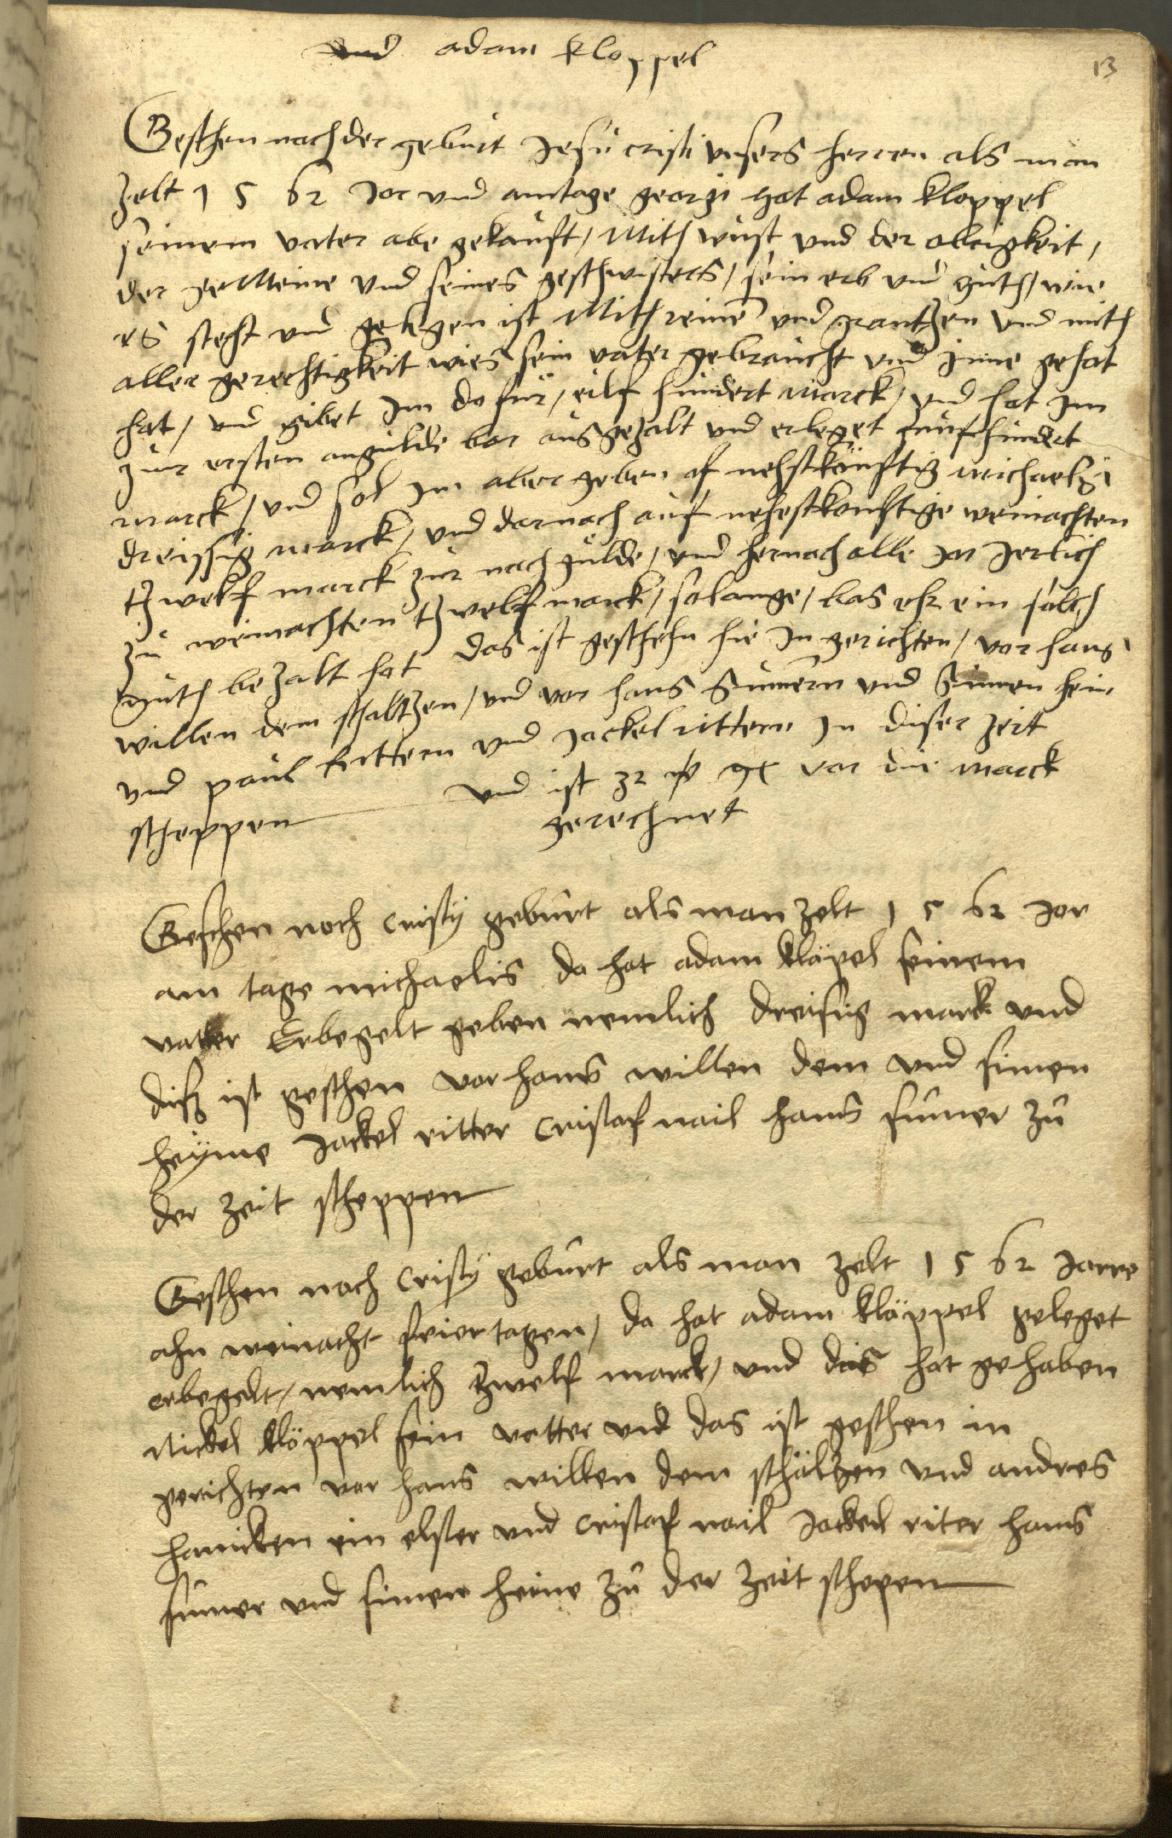 und adam kloppel
13
Geschen nach der geburt Jesu cristi unsers herren als man
zelt 1562 Jor und am tage georgi hat adam kloppel
seinem vater abe gekauft / Mith wust und der obrigkeit /
der geMeine und seines geschwisters / sein erb und guth / wie
es steht und gelegen ist Mith reinen und rantzen und mith
aller gerechtigkeit wies sein vater gebraucht und inne gehat
hat / und gibet Im do fur / eilf hundert marck / und hat Im
zur ersten angulde bar ausgezalt und erleget funfhundert
marck / und sol Im aber geben of nehstkunftig michaelis
dreissig marck / und darnach auf nehestkonftige weinachten
tzwelf marck zur nachgulde / und hernach alle Jar Jerlich
zu weinachten tzwelf marck / solange / bas ehr ein solch
guth bezalt hat das ist geschehn hie In gerichten / vor hans
willen dem scholtzen / und vor hans Sumern und Simen hein
und paul rittern und Jackel rittern In diser zeit
scheppen und ist 32 gr vor die marck
gerechnet
Geschen noch cristy geburt als man zelt 1562 Jor
am tage michaelis da hat adam klöpel seinem
vatter Erbegelt geben nemlich dreisig marck und
diss ist geschen vor hans willen dem und simen
heyme Jackel ritter cristof nail hans sumer zu
der zeit scheppen
Geschen noch cristy geburt als man zelt 1562 Jarre
ahn weinacht feiertagen / da hat adam klöppel geleget
erbegelt / nemlich zwelf marck / und das hat gehaben
Nickel klöppel sein vatter und das ist geschen in
gerichten vor hans willen dem schöltzen und andres
hanicken ein elster und cristof nail Jackel riter hans
sumer und simen heine zu der zeit schepen